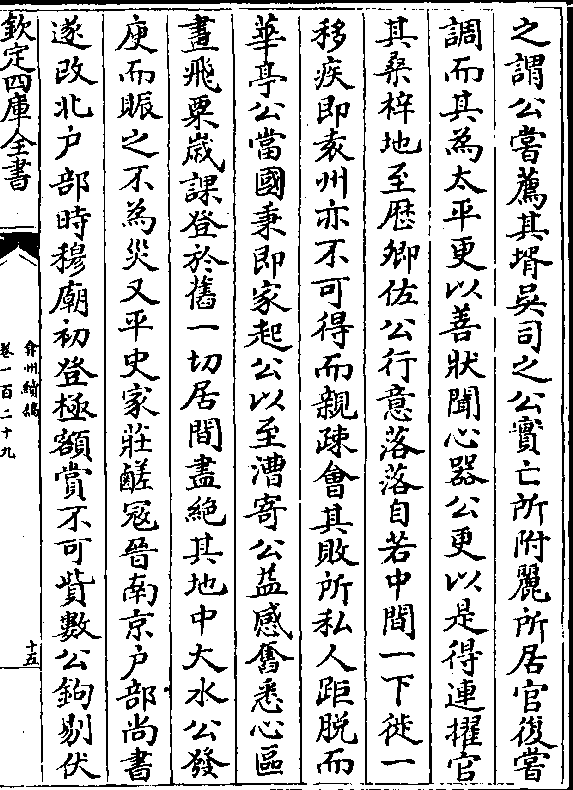 之謂公嘗薦其壻吳司之公實亡所附麗所居官復嘗
調而其為太平更以善狀聞心器公更以是得連擢官
其桑梓地至歴卿佐公行意落落自若中間一下徙一
移疾即袁州亦不可得而親疎會其敗所私人距脱而
華亭公當國秉即家起公以至漕寄公益感奮悉心區
畫飛粟嵗課登於舊一切居間盡絶其地中大水公發
庾而賑之不為災又平史家莊鹺冦晉南京户部尚書
遂改北户部時穆廟初登極額賞不可貲數公鉤剔伏
欽定四庫全書
弇州續稿
卷一百二十九
十五